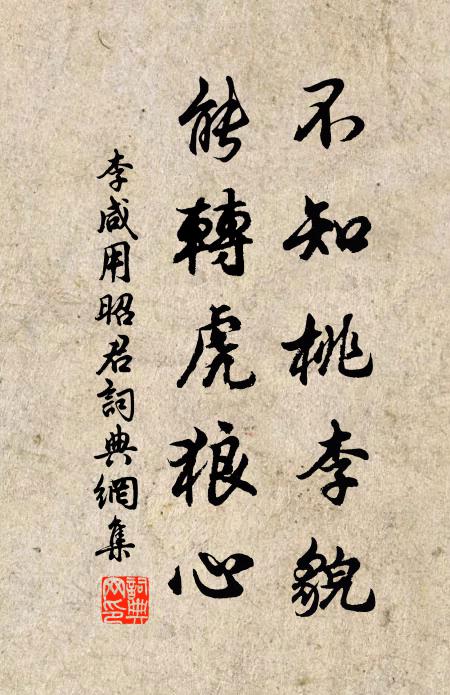 不知桃李貌
能轉虎狼心
李咸用昭君詞典網集
詞典网印